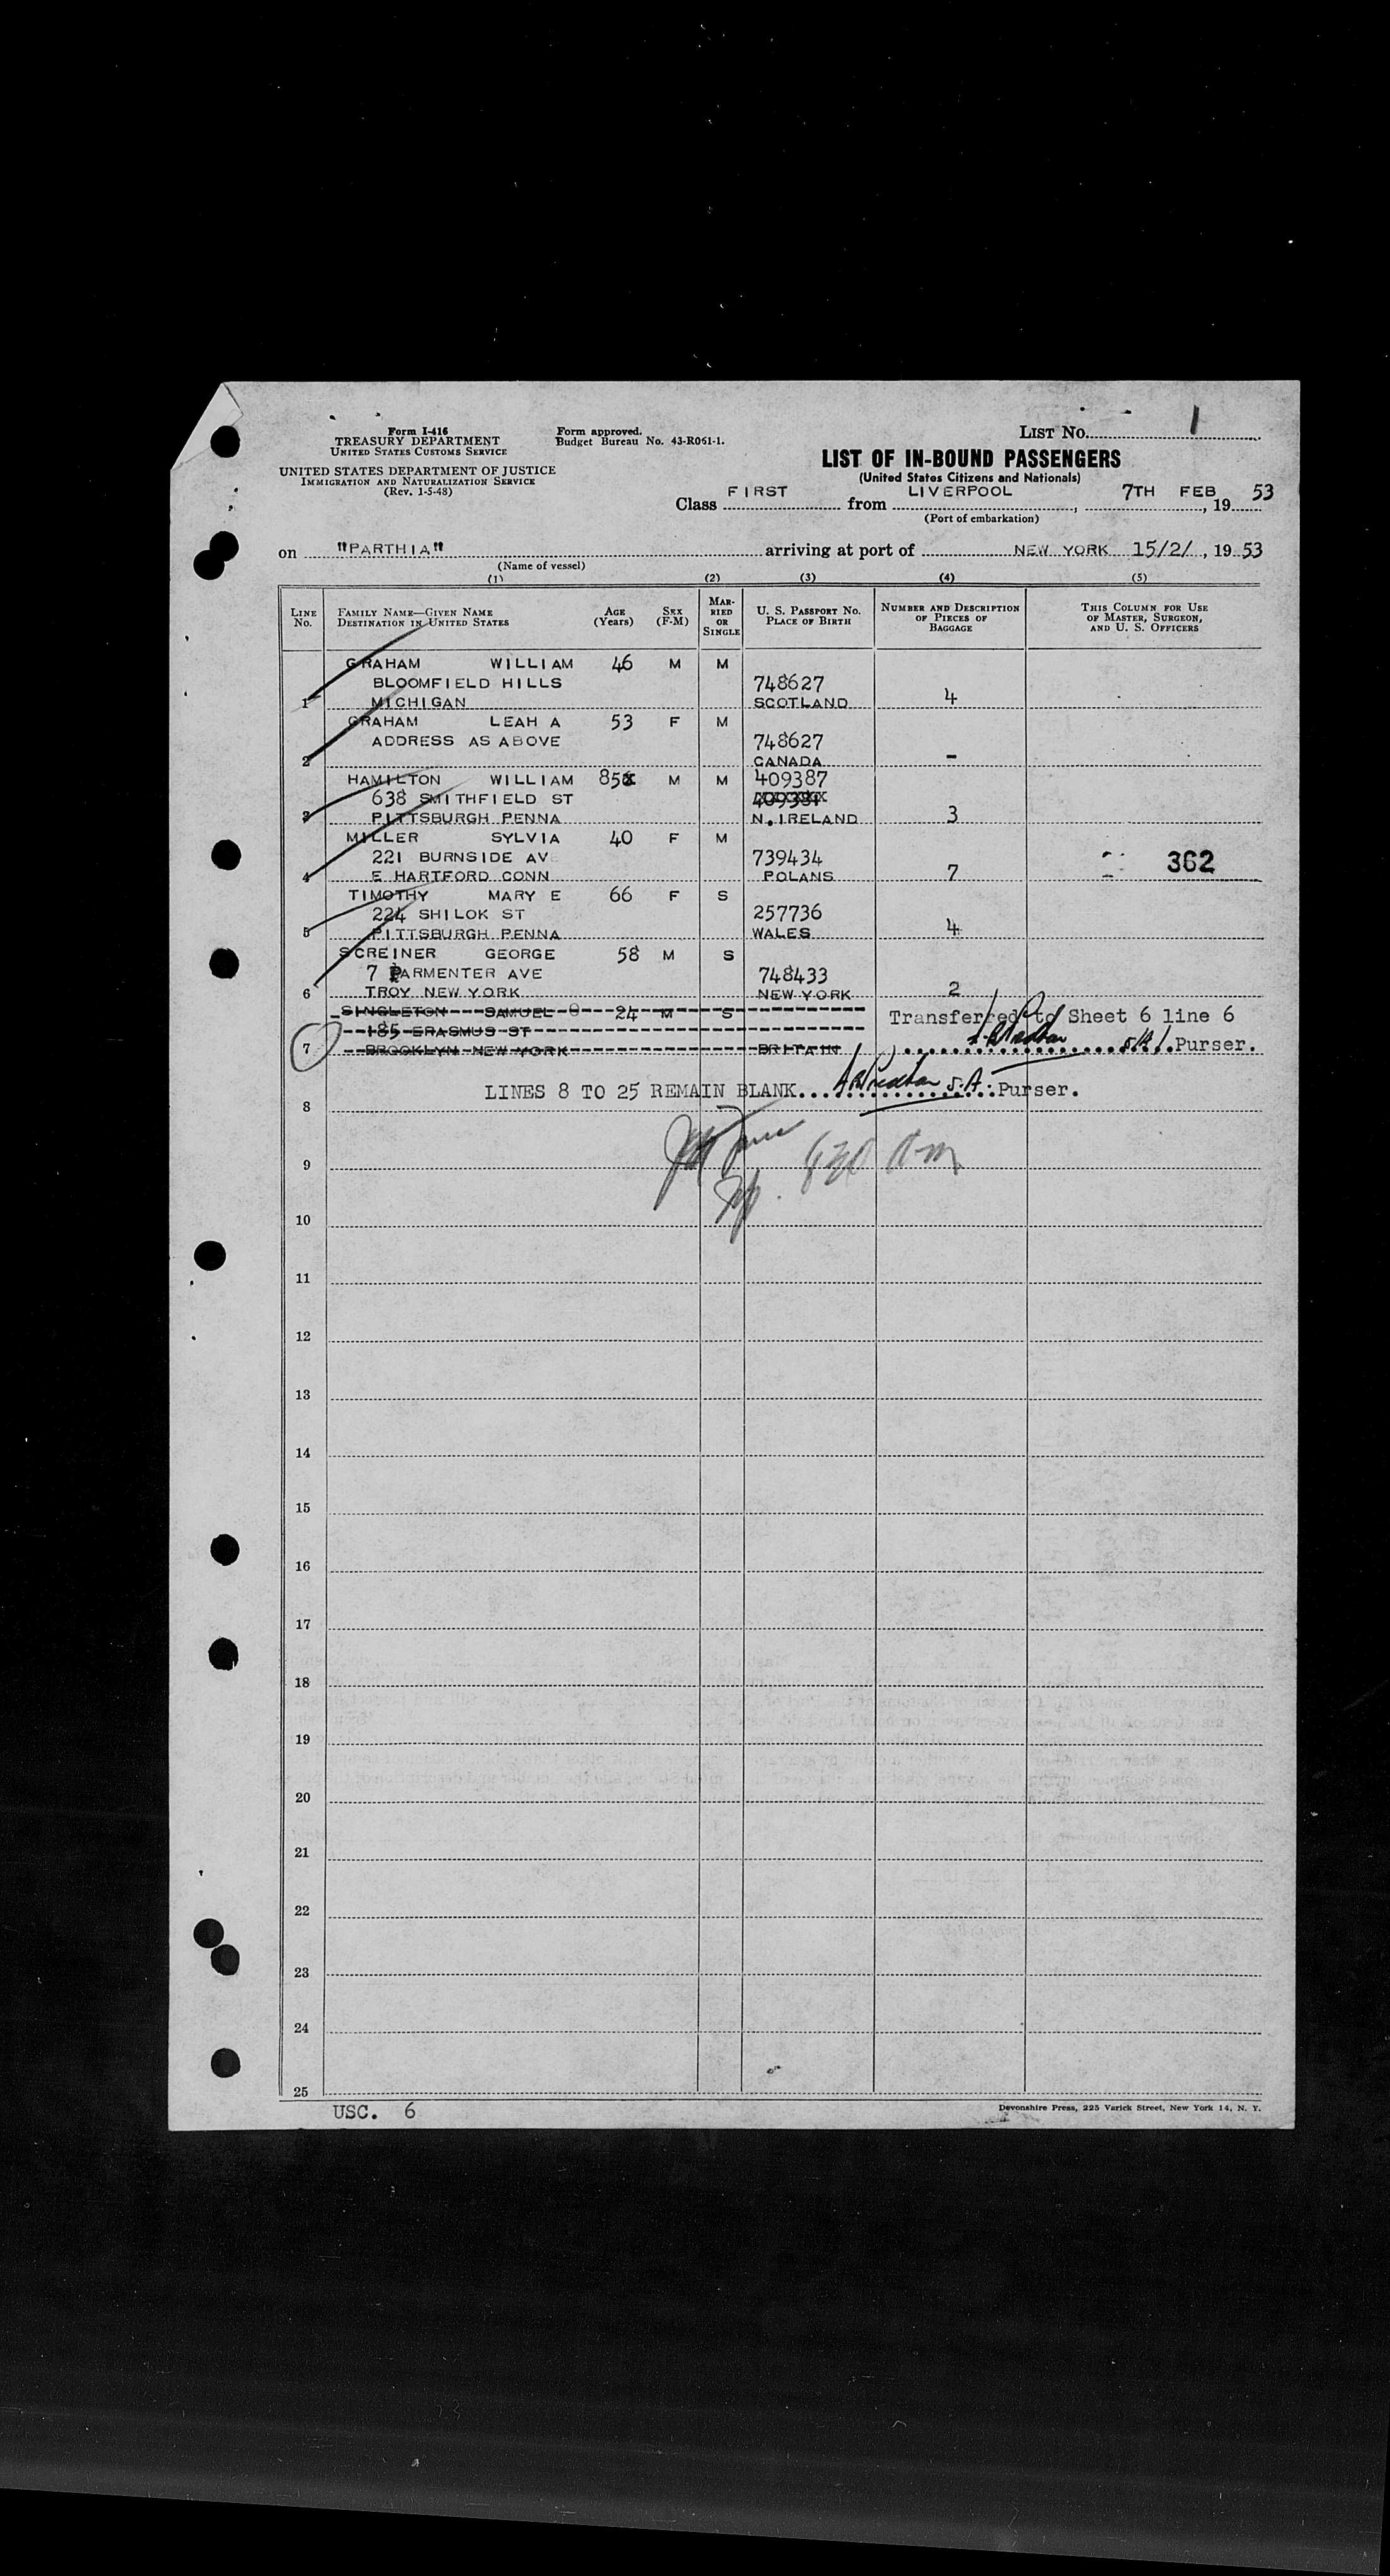 Form I-416
TREASURY DEPARTMENT
UNITED STATES CUSTOMS SERVICE
UNITED STATES DEPARTMENT OF JUSTICE
IMMIGRATION AND NATURALIZATION SERVICE
(Rev. 1-5-48)
Form approved.
Budget Bureau No. 43-R061-1.
LIST NO. 1
LIST OF IN-BOUND PASSENGERS
(United States Citizens and Nationals)
Class FIRST from LIVERPOOL, 7TH FEB, 19 53
(Port of embarkation)
on "PARTHIA" arriving at port of NEW YORK 15/2/, 19 53
(Name of vessel)
(1) (2) (3) (4) (5)
LINE NO. FAMILY NAME—GIVEN NAME DESTINATION IN UNITED STATES AGE (Years) SEX (F-M) MARRIED OR SINGLE U. S. PASSPORT NO. PLACE OF BIRTH NUMBER AND DESCRIPTION OF PIECES OF BAGGAGE THIS COLUMN FOR USE OF MASTER, SURGEON, AND U. S. OFFICERS
GRAHAM WILLIAM 46 M M
BLOOMFIELD HILLS 748627
1 MICHIGAN SCOTLAND 4
GRAHAM LEAH A 53 F M
ADDRESS AS ABOVE 748627
2 CANADA -
HAMILTON WILLIAM 85 M M 409387
638 SMITHFIELD ST
3 PITTSBURGH PENNA N.IRELAND 3
MILLER SYLVIA 40 F M
221 BURNSIDE AVE 739434
4 E HARTFORD CONN POLANS 7 362
TIMOTHY MARY E 66 F S
224 SHILOK ST 257736
5 PITTSBURGH PENNA WALES 4
SCREINER GEORGE 58 M S
7 PARMENTER AVE 748433
6 TROY NEW YORK NEW YORK 2
SINGLETON SAMUEL O 24 M S Transferred to Sheet 6 line 6
185 ERASMUS ST
7 BROOKLYN NEW YORK BRITAIN Purser.
LINES 8 TO 25 REMAIN BLANK Purser.
8
9 830 am
10
11
12
13
14
15
16
17
18
19
20
21
22
23
24
25
USC. 6
Devonshire Press, 225 Varick Street, New York 14, N. Y.